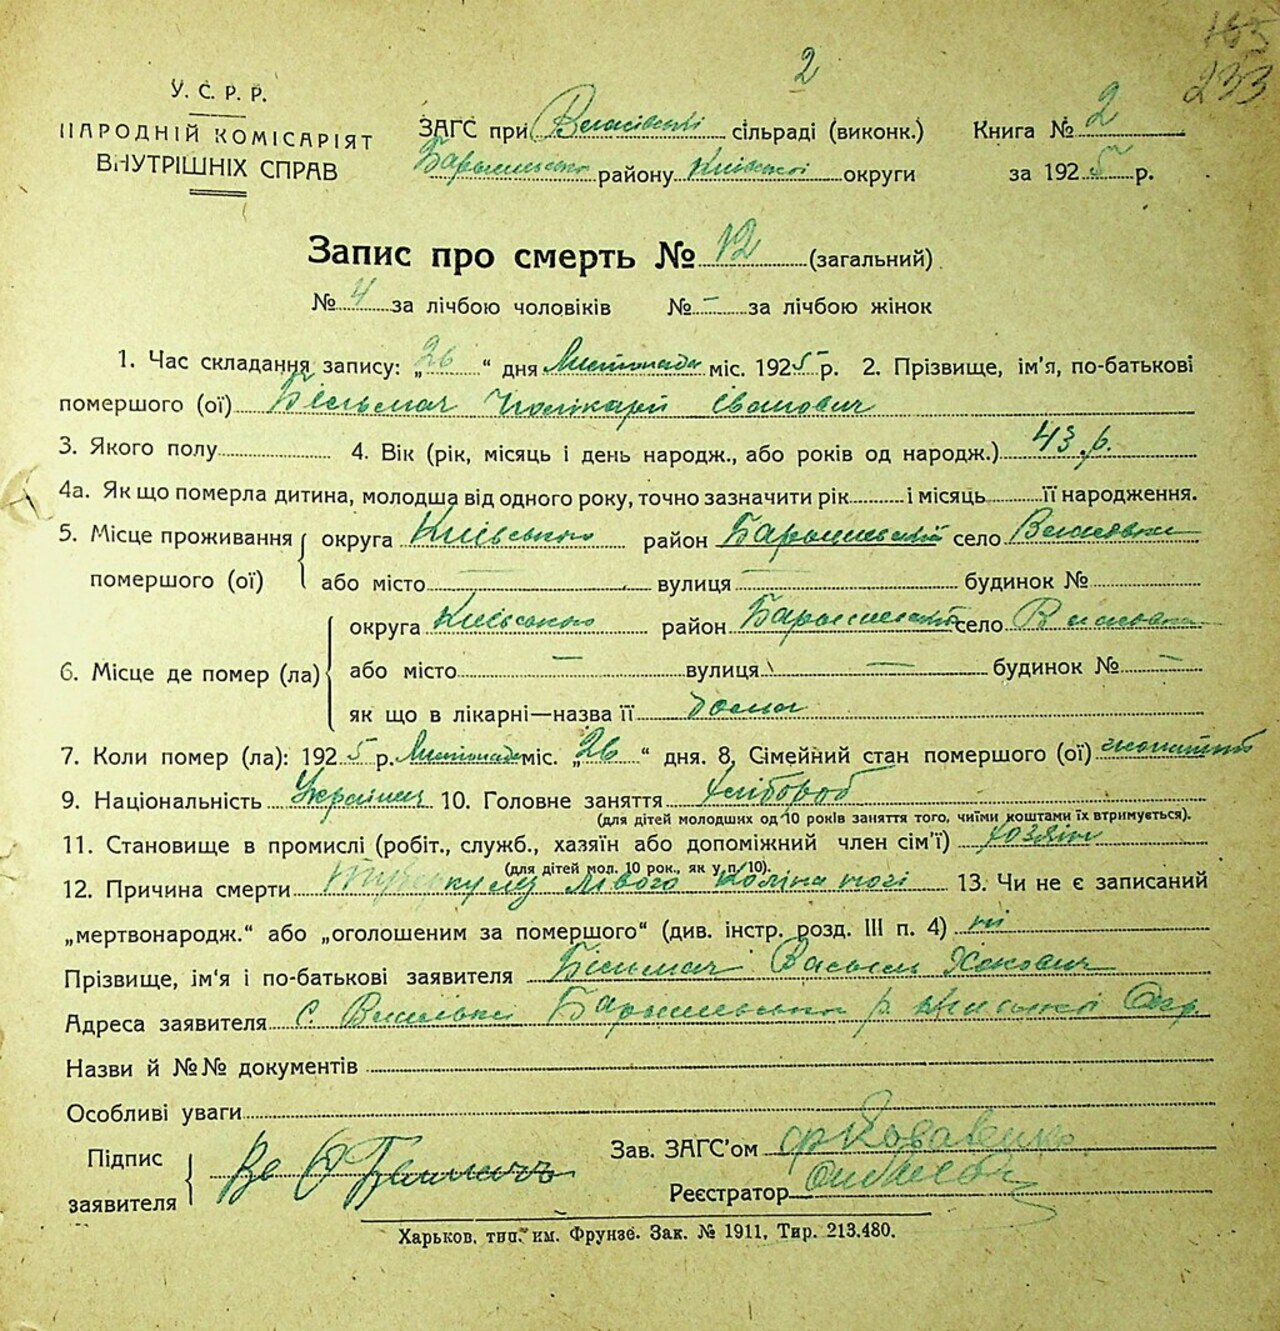 2
233
У. С. Р. Р.
НАРОДНІЙ КОМІСАРІЯТ
ВНУТРІШНІХ СПРАВ
ЗАГС при сільраді (виконк.)
району Київської округи
Книга № 2
за 1925 р.
Запис про смерть № 12 (загальний)
№ 4 за лічбою чоловіків № – за лічбою жінок
1. Час складання запису: „26“ дня Листопада міс. 1925 р. 2. Прізвище, ім'я, по-батькові
помершого (ої) Більмач Полікарп Іванович
3. Якого полу 4. Вік (рік, місяць і день народж., або років од народж.) 43 р.
4а. Як що померла дитина, молодша від одного року, точно зазначити рік і місяць її народження.
5. Місце проживання помершого (ої) округа Київського район село
або місто — вулиця — будинок №
6. Місце де помер (ла) округа Київського район село
або місто — вулиця — будинок № —
як що в лікарні—назва її дома
7. Коли помер (ла): 1925 р. Листопада міс. „26“ дня. 8. Сімейний стан помершого (ої) жонатий
9. Національність Українец 10. Головне заняття хлібороб
(для дітей молодших од 10 років заняття того, чиїми коштами їх втримується).
11. Становище в промислі (робіт., служб., хазяїн або допоміжний член сім'ї) хозяін
(для дітей мол. 10 рок., як у п. 10).
12. Причина смерти Туберкулез лівого коліна ногі 13. Чи не є записаний
„мертвонародж.“ або „оголошеним за помершого“ (див. інстр. розд. III п. 4) ні
Прізвище, ім'я і по-батькові заявителя Більмач Василь
Адреса заявителя с. р. Київської Окр.
Назви й №№ документів
Особливі уваги
Підпис
заявителя
Зав. ЗАГС'ом
Реєстратор
Харьков, тип. им. Фрунзе. Зак. № 1911, Тир. 213.480.